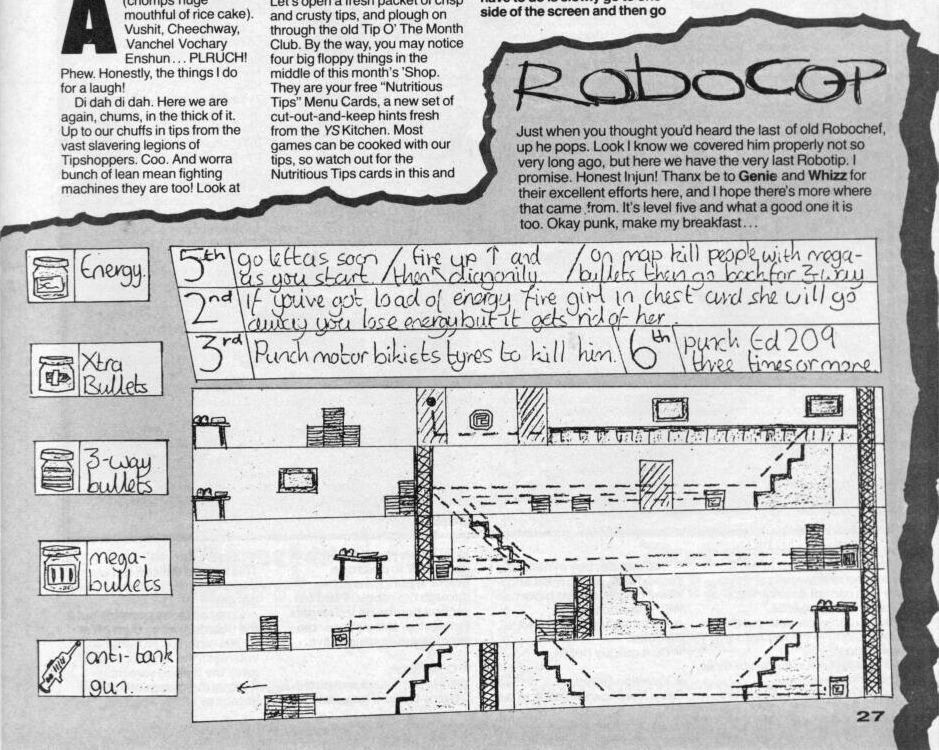 (chomps huge
mouthful of rice cake).
A Vushit, Cheechway,
Vanchel Vochary
Enshun... PLRUCH!
Phew. Honestly, the things I do
for a laugh!
Di dah di dah. Here we are
again, chums, in the thick of it.
Up to our chuffs in tips from the
vast slavering legions of
Tipshoppers. Coo. And worra
bunch of lean mean fighting
machines they are too! Look at
Let's open a fresh packet of crisp
and crusty tips, and plough on
through the old Tip O' The Month
Club. By the way, you may notice
four big floppy things in the
middle of this month's 'Shop.
They are your free "Nutritious
Tips" Menu Cards, a new set of
cut-out-and-keep hints fresh
from the YS Kitchen. Most
games can be cooked with our
tips, so watch out for the
Nutritious Tips cards in this and
side of the screen and then go
ROBOCOP
Just when you thought you'd heard the last of old Robochef,
up he pops. Look I know we covered him properly not so
very long ago, but here we have the very last Robotip. I
promise. Honest Injun! Thanx be to Genie and Whizz for
their excellent efforts here, and I hope there's more where
that came from. It's level five and what a good one it is
too. Okay punk, make my breakfast...
Energy.
Xtra
Bullets
3-way
bullets
mega-
bullets
anti-tank
gun.
5th go left as soon / fire up ↑ and / on map kill people with mega-
as you start. / then ↖ diagonily / bullets then go back for 3-way
2nd if you've got load of energy fire girl in chest and she will go
away you lose energy but it gets rid of her.
3rd Punch motor bikists tyres to kill him. \ 6th punch Ed 209
three times or more.
27